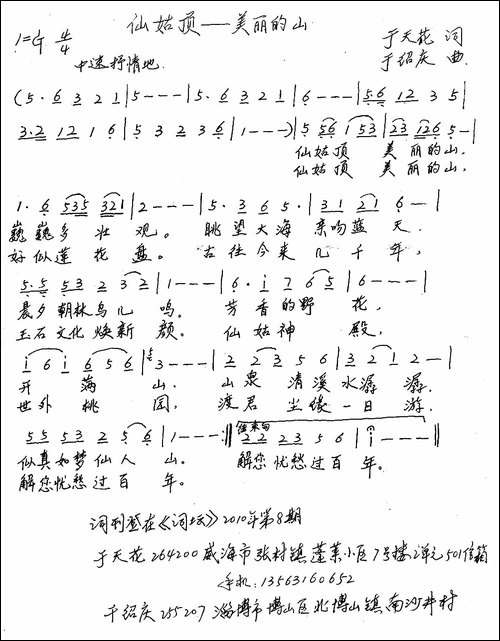 仙姑顶——美丽的山
1=G 4/4
于天花 词
中速抒情地
于绍庆 曲
(5· 6 3 2 1|5 - - -|5· 6 3 2 1|6 - - -|5·6 12 3 5|
3·2 12 1 6|5 3 2 3 6|1 - - -)|5 56 1 53|23 126 5 -|
仙姑顶 美丽的山,
仙姑顶 美丽的山,
1· 6 535 321|2 - - -|5· 3 6 5·|31 21 6 -|
巍巍多壮观。 眺望大海亲吻蓝天.
好似莲花盘。 古往今来几千年,
5·5 53 2 32|1 - - -|6· i 7 65|6 - - -|
晨夕朝林鸟儿鸣. 芳香的野花,
玉石文化焕新颜. 仙姑神殿,
i 6 i 6 5 6|3 - - -|2 2 3 5 6|3 2 1 2 -|
开满山. 山泉清溪水潺潺.
世外桃园, 渡君尘缘一日游.
55 53 2 5 6|1 - - -:‖结束句 22 23 5 6|i - - -‖
似真如梦仙人山. 解您忧愁过百年。
解您忧愁过百年。
词刊登在《词坛》2010年第8期
于天花 264200 威海市张村镇蓬莱小区7号楼2单元501信箱
手机:13563160652
于绍庆 255207 淄博市博山区北博山镇南沙井村